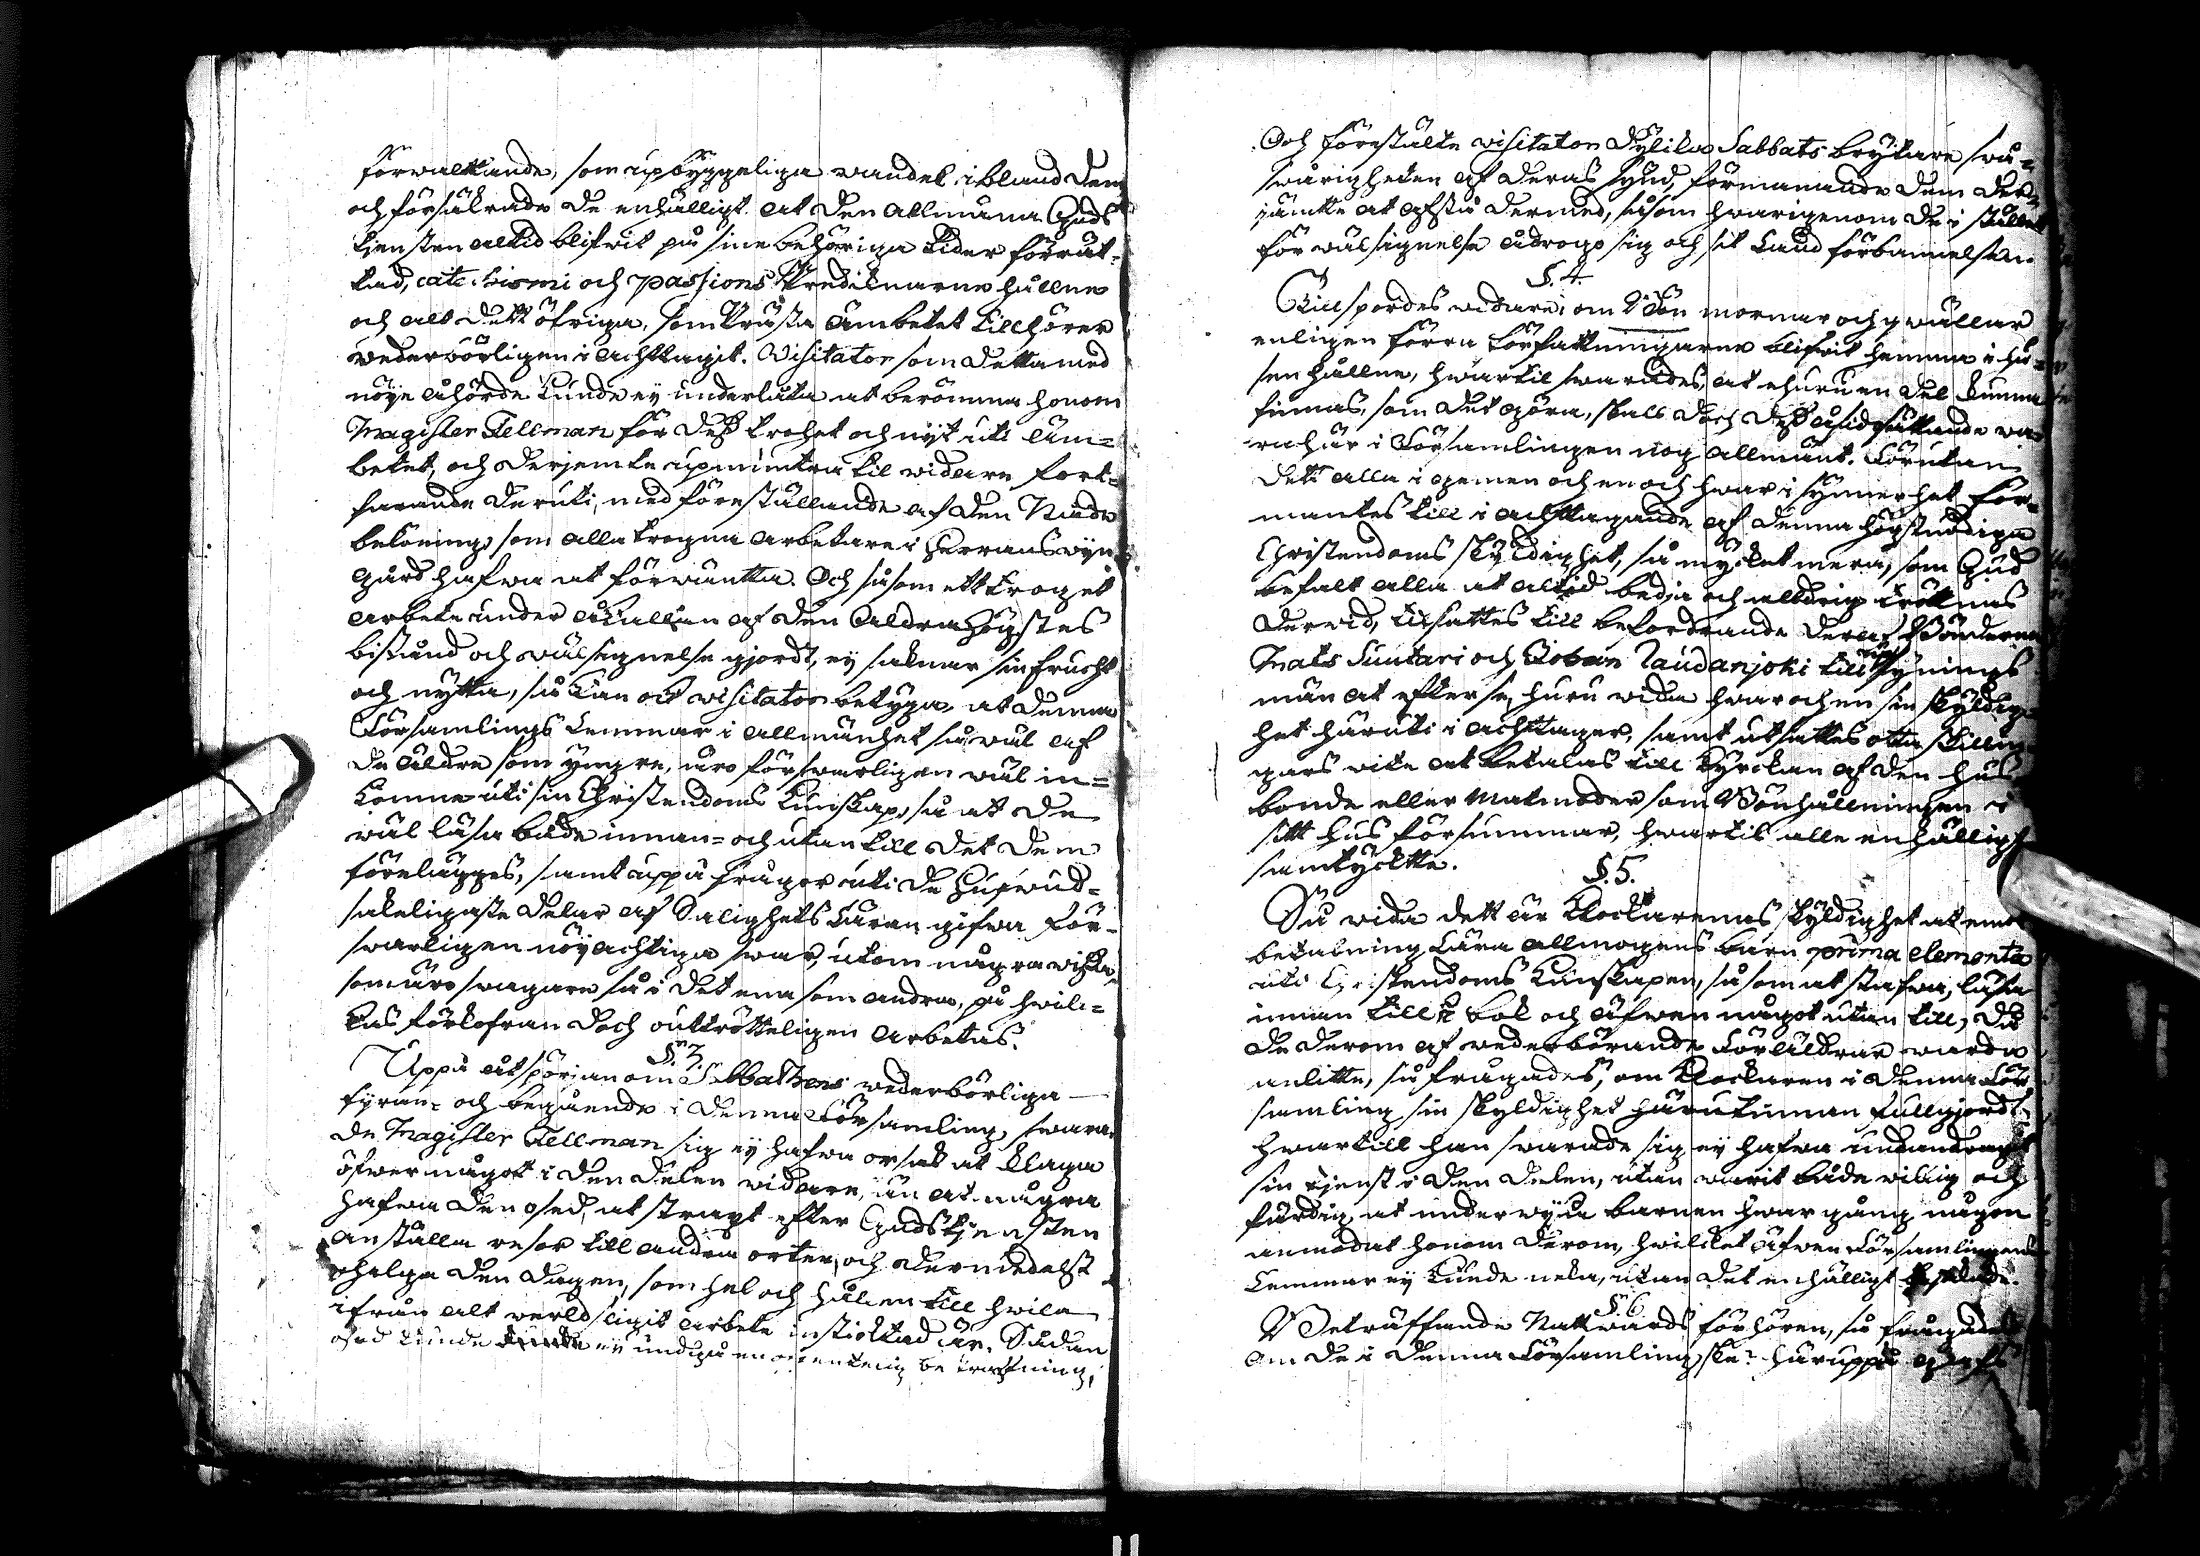 förwaltande, som upbyggeliga wandel ibland dem
och försäkrade de enhälligt at den allmäna Guds
tiensten altid blifwit på sine behöriga tider förrät-
tad, catechismi och passions Predikarne hållne
och alt dett öfriga, som Prästa Ämbetet tillhörer
wederbörligen i achttagit. Visitator som detta med
nöye åhörde kunde ey underlåta at berömma honom
Magister Fellman för dess trohet och nyt uti äm-
betet, och derjemte upmuntra til widare fort-
farande deruti, med föreställande af den Nåde
belöning, som alla trogna arbetare i Herrans wijn
gård hafwa at förwänta. Och såsom ett troget
arbete under åkallan af den Aldrahögstes
bistånd och wälsignelse gjordt, ey saknar sin frucht
och nytta, så kan ock visitator betyga at denna
Församlings Lemmar i allmänhet så wäl af
de äldre som yngre, äro förswarligen wäl in-
komne uti sin Christendoms kunskap, så at de
wäl läsa både innan- och utan till det dem
förelägges, samt uppå frågor uti de hufwud-
sakeligaste delar af Salighets Läran gifwa för-
swarligen nöyachtiga swar, utom några wissa,
som äro swagare så i det ena som andra, på hwil-
kas förkofran doch outtrötteligen arbetas.
§. 3.
Uppå åtspörjan om Sabbathens wederbörliga
fyran- och begående i denna Församling, swara-
de Magister Fellman sig ey hafwa orsak at klaga
öfwer något i den delen widare, än at några
hafwa den osed, at straxt efter Gudstjensten
anställa resor till andra orter, och dermedelst
ohelga den dagen, som hel och hållen till hwila
ifrån alt werldsligit arbete insticktad är. Sådan
osed kunde ey undgå en offentelig bestraffning,
Och förestälte visitator dylika Sabbats brytare swå-
swårigheten af deras synd, förmanande dem der-
jämte at afstå dermed, såsom hwarigenom de i stället
för wälsignelse ådrogo sig och sit Land förbannelsen.
§. 4.
Tillspordes widare, om Bön mornar och qwällar
enligen förra författningarne blifwit hemma i hu-
sen hållne, hwartil swarades, at ehuru en del kunna
finnas, som det göra, skall doch dess åsidosättande wa-
ra här i Församlingen nog allmänt. Förutan
dett alla i gemen och en och hwar i synnerhet för-
mantes till i achttagande af denna högstnödiga
Christendoms skyldighet, så mycket mera, som Gud
befalt alla at altid bedja och aldrig tröttnas
derwid, tilsattes till befordrande deraf Bönderna
Mats Suutari och Johan Laudanjoki till Upsynings
män at efterse, huru wida hwar och en sin skyldig-
het häruti i achttager, samt utsattes otta skillin-
gars wite at betalas till Kyrckan af den hus
bonde eller Matmoder som Bönhållningen i
sitt hus försummar, hwartil alle enhälligt
samtyckte.
§. 5.
Så wida dett är Klockarenas skyldighet at emot
betalning lära allmogens barn prima elementa
uti Christendoms kunskapen, såsom at stafwa, läsa
innan till i bok och äfwen något utan till, då
de derom af wederbörande Föräldrar warda
anlitte, så frågades, om Klockaren i denna För
samling sin skyldighet härutinnan fullgjordt,
hwartill han swarade sig ey hafwa undandragit
sin tjenst i den delen, utan warit både willig och
färdig at underwijsa barnen hwar gång någon
anmodat honom derom, hwilcket äfwen Församlingens
Lemmar ey kunde neka, utan det enhälligt
§. 6
Beträffande Nattwards förhören, så frågades
om de i denna Församling ske? häruppå